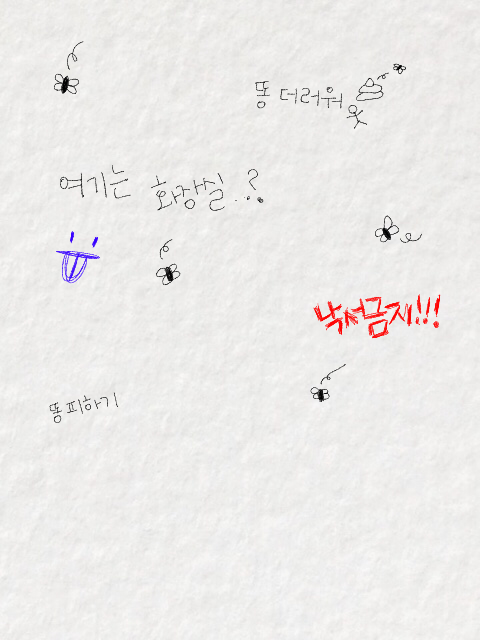 똥 더러워
여기는 화장실..?
낙서금지!!!
똥피하기